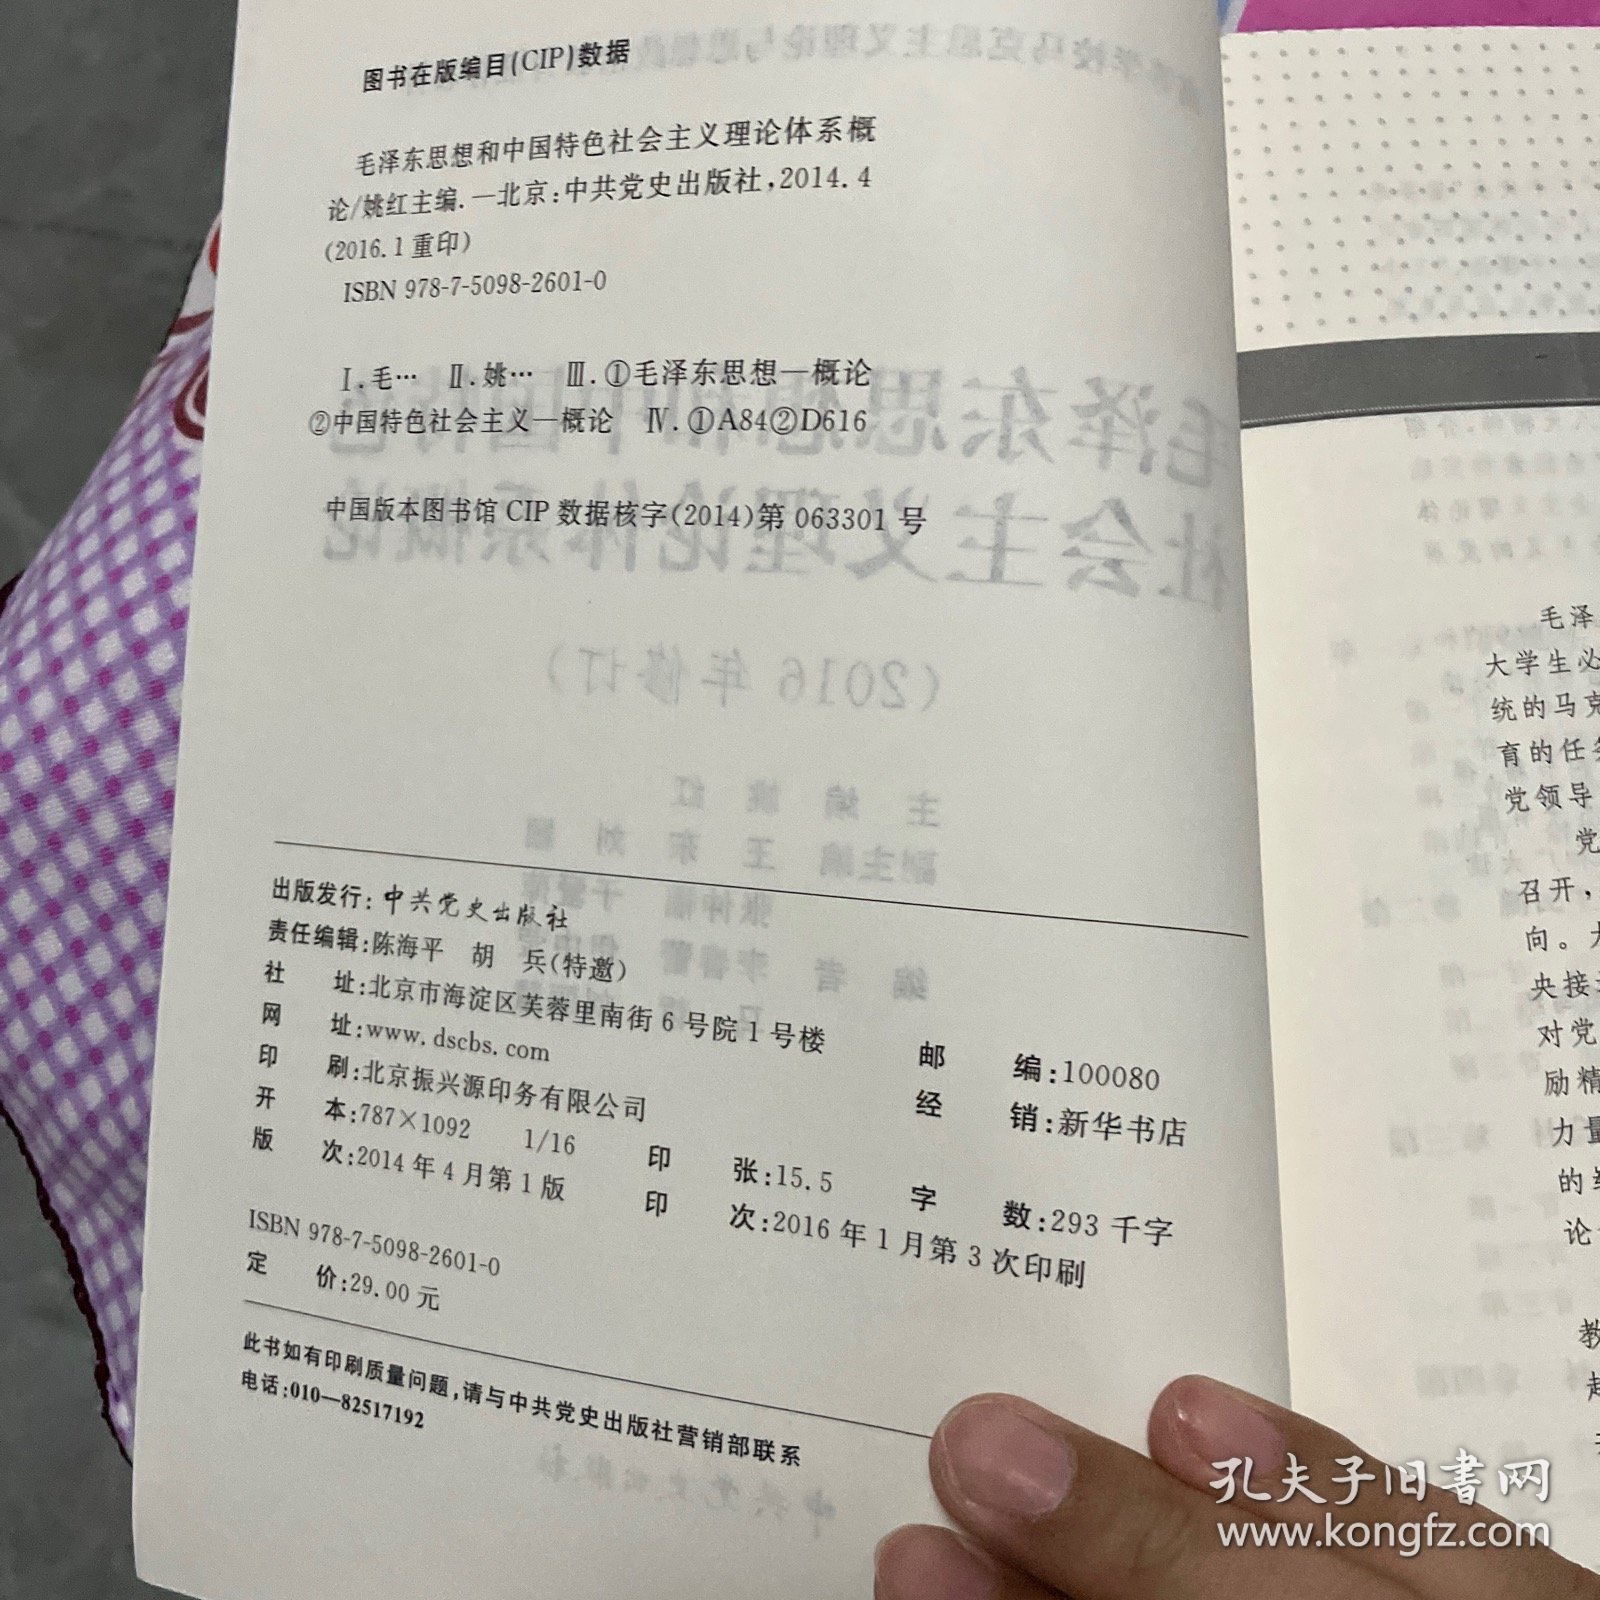 图书在版编目(CIP)数据
毛泽东思想和中国特色社会主义理论体系概
论/姚红主编.—北京:中共党史出版社,2014.4
(2016.1重印)
ISBN 978-7-5098-2601-0
Ⅰ.毛… Ⅱ.姚… Ⅲ.①毛泽东思想—概论
②中国特色社会主义—概论 Ⅳ.①A84②D616
中国版本图书馆CIP数据核字(2014)第063301号
出版发行:中共党史出版社
责任编辑:陈海平 胡 兵(特邀)
社 址:北京市海淀区芙蓉里南街6号院1号楼 邮 编:100080
网 址:www.dscbs.com 经 销:新华书店
印 刷:北京振兴源印务有限公司
开 本:787×1092 1/16 印 张:15.5 字 数:293千字
版 次:2014年4月第1版 印 次:2016年1月第3次印刷
ISBN 978-7-5098-2601-0
定 价:29.00元
此书如有印刷质量问题,请与中共党史出版社营销部联系
电话:010—82517192
毛泽
大学生必
统的马克
育的任务
党领导
党
召开,
向。大
央接
对党
励精
力量
的
论
教
孔夫子旧书网
www.kongfz.com